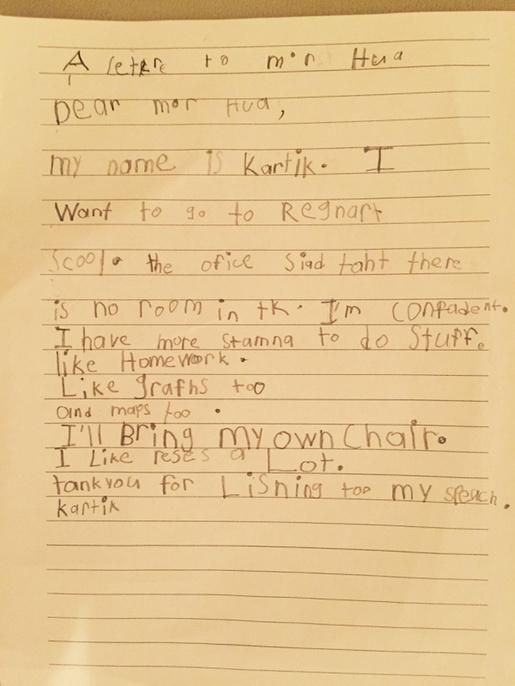 A letere to mor Hua
Dear mor Hua,
my name is Kartik. I
Want to go to Regnart
Scool. the ofice Siad taht there
is no room in tk. I'm conpadent.
I have more stamna to do Stuff.
like Homework.
Like grafhs too
and maps too.
I'll Bring my own Chair.
I Like reses a Lot.
tankyou for Lisning too my speach.
kartik